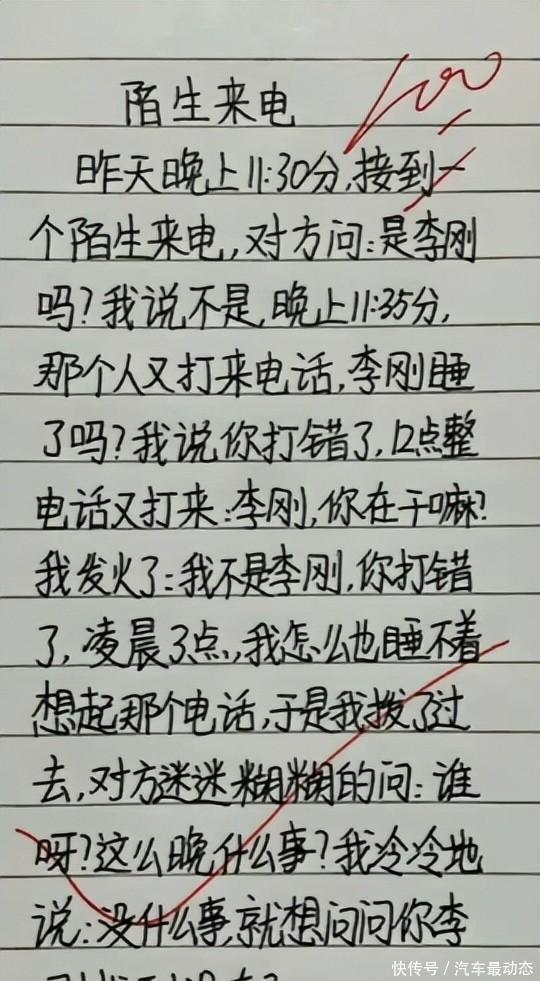 陌生来电
100
昨天晚上11:30分,接到一
个陌生来电,对方问:是李刚
吗?我说不是,晚上11:35分,
那个人又打来电话,李刚睡
了吗?我说你打错了,12点整
电话又打来:李刚,你在干嘛?
我发火了:我不是李刚,你打错
了,凌晨3点,我怎么也睡不着
想起那个电话,于是我拨了过
去,对方迷迷糊糊的问:谁
呀?这么晚什么事?我冷冷地
说:没什么事,就想问问你李
快传号/汽车最动态